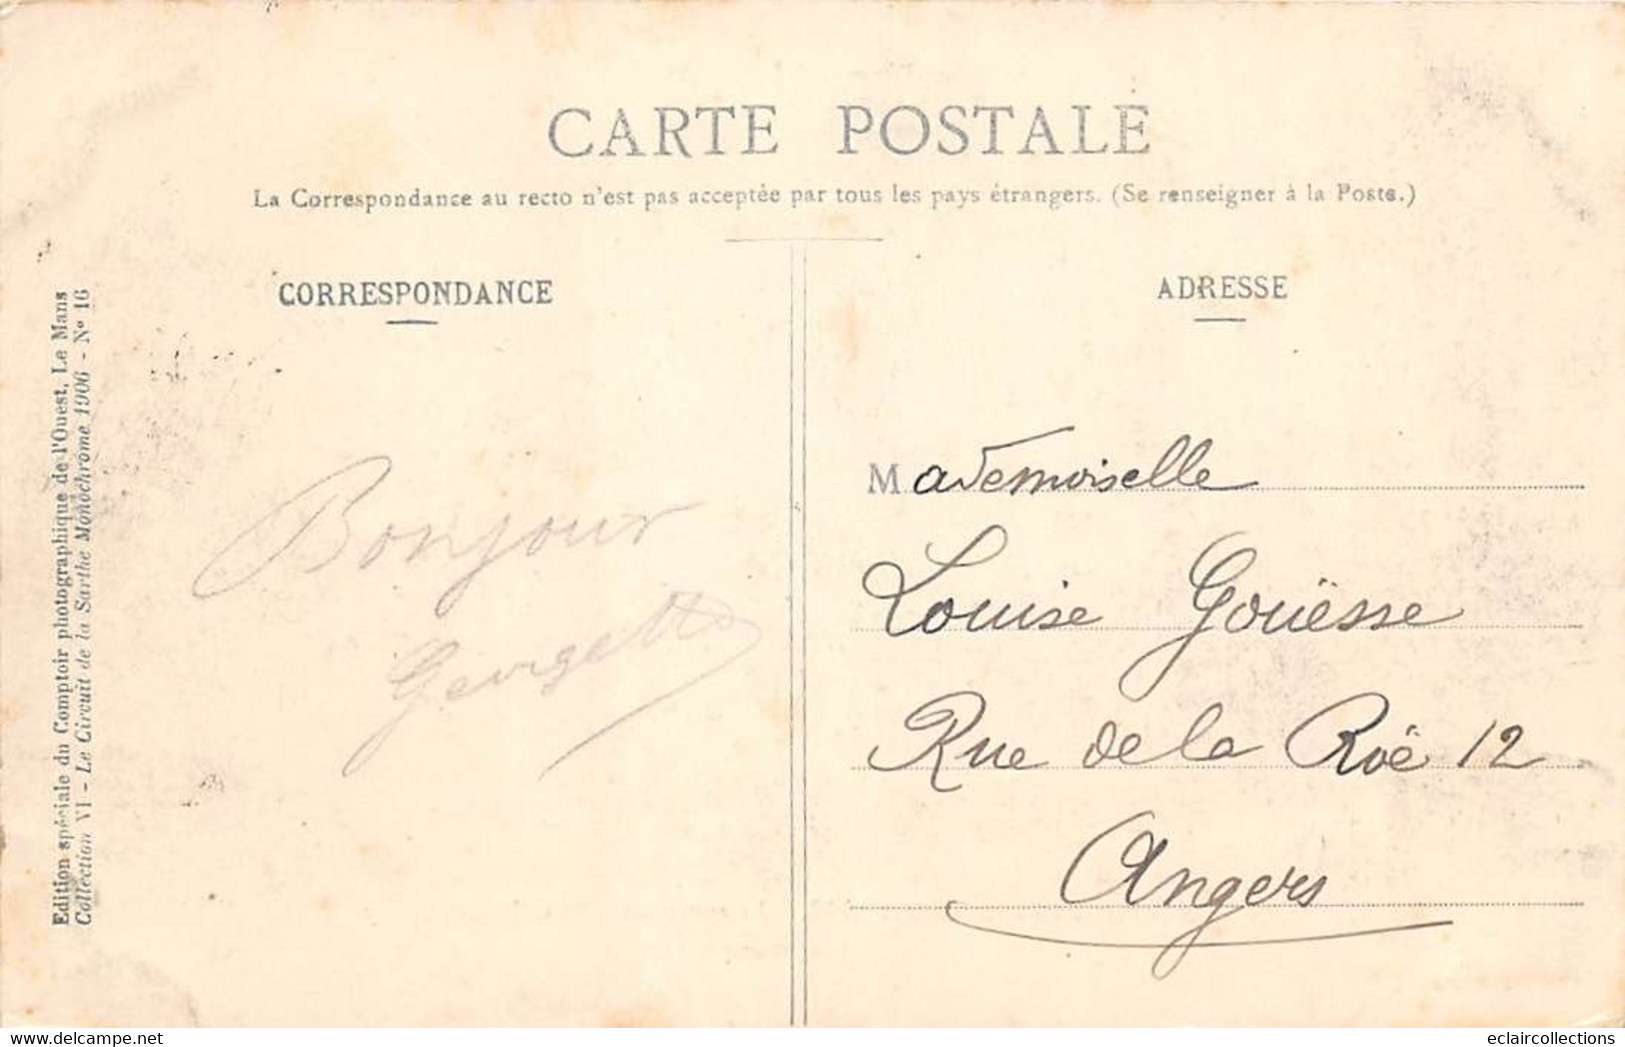 CARTE POSTALE
La Correspondance au recto n'est pas acceptée par tous les pays étrangers. (Se renseigner à la Poste.)
CORRESPONDANCE
Bonjour
Georgette
ADRESSE
Mademoiselle
Louise Gouësse
Rue de la Roë 12
Angers
Edition spéciale du Comptoir photographique de l'Ouest, Le Mans
Collection VI - Le Circuit de la Sarthe Monochrome 1906 - N° 16
eclaircollections